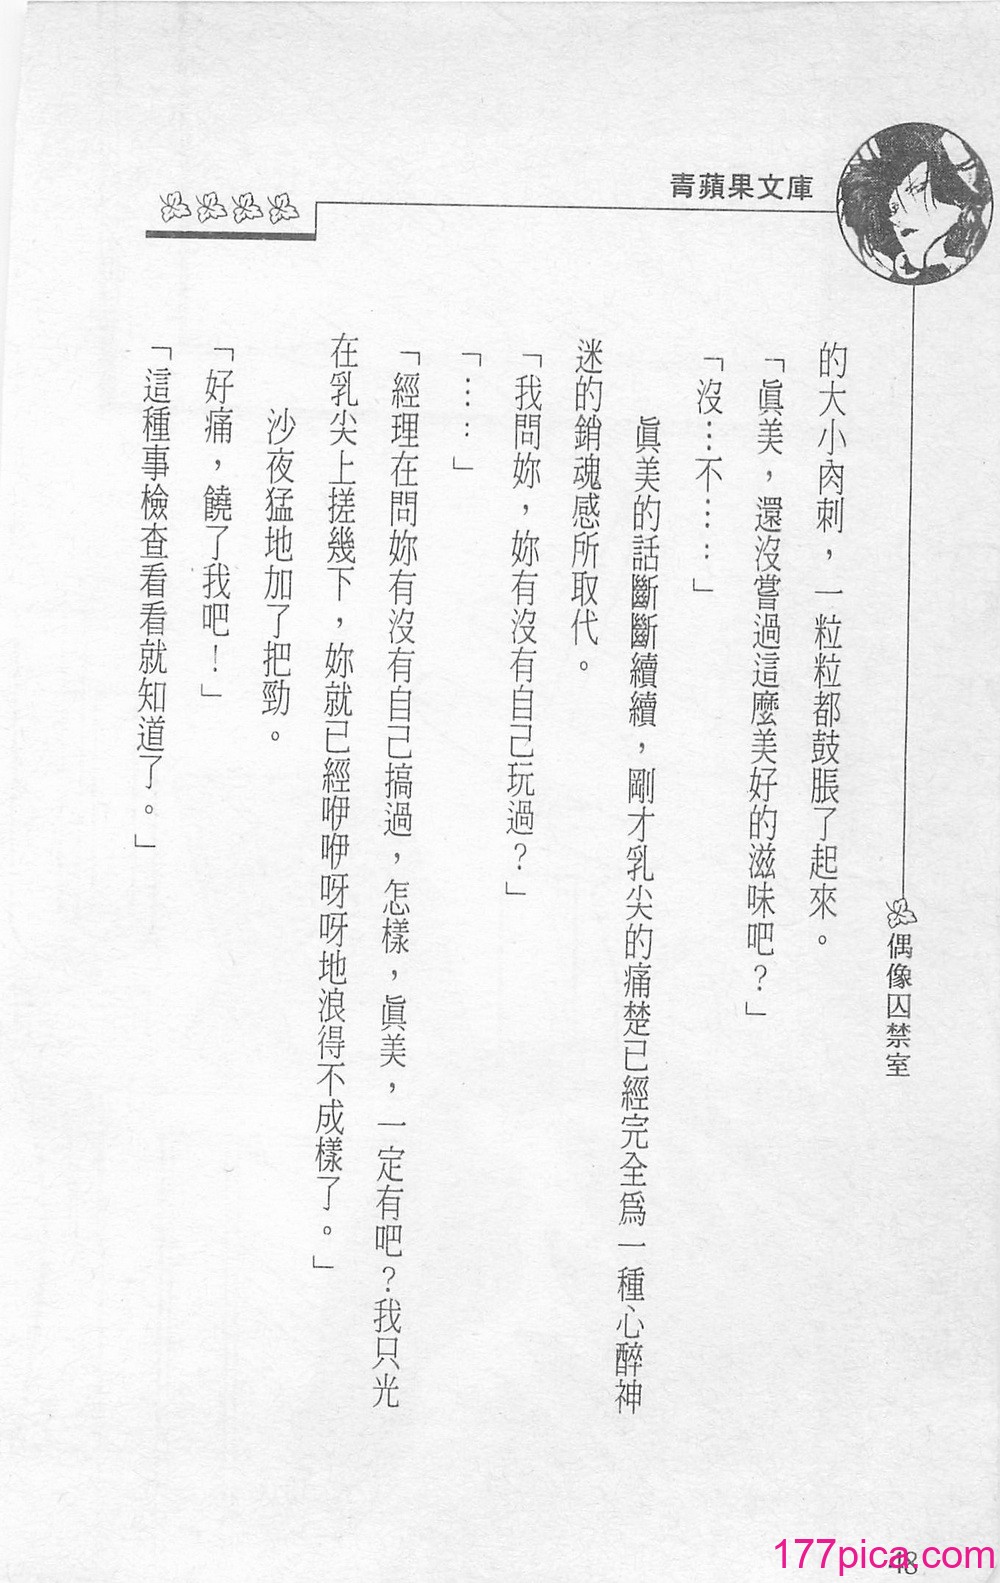 青蘋果文庫
偶像囚禁室
的大小肉刺，一粒粒都鼓脹了起來。
「眞美，還沒嘗過這麼美好的滋味吧？」
「沒…不……」
眞美的話斷斷續續，剛才乳尖的痛楚已經完全爲一種心醉神
迷的銷魂感所取代。
「我問妳，妳有沒有自己玩過？」
「……」
「經理在問妳有沒有自己搞過，怎樣，眞美，一定有吧？我只光
在乳尖上搓幾下，妳就已經咿咿呀呀地浪得不成樣了。」
沙夜猛地加了把勁。
「好痛，饒了我吧！」
「這種事檢查看看就知道了。」
48
177pica.com